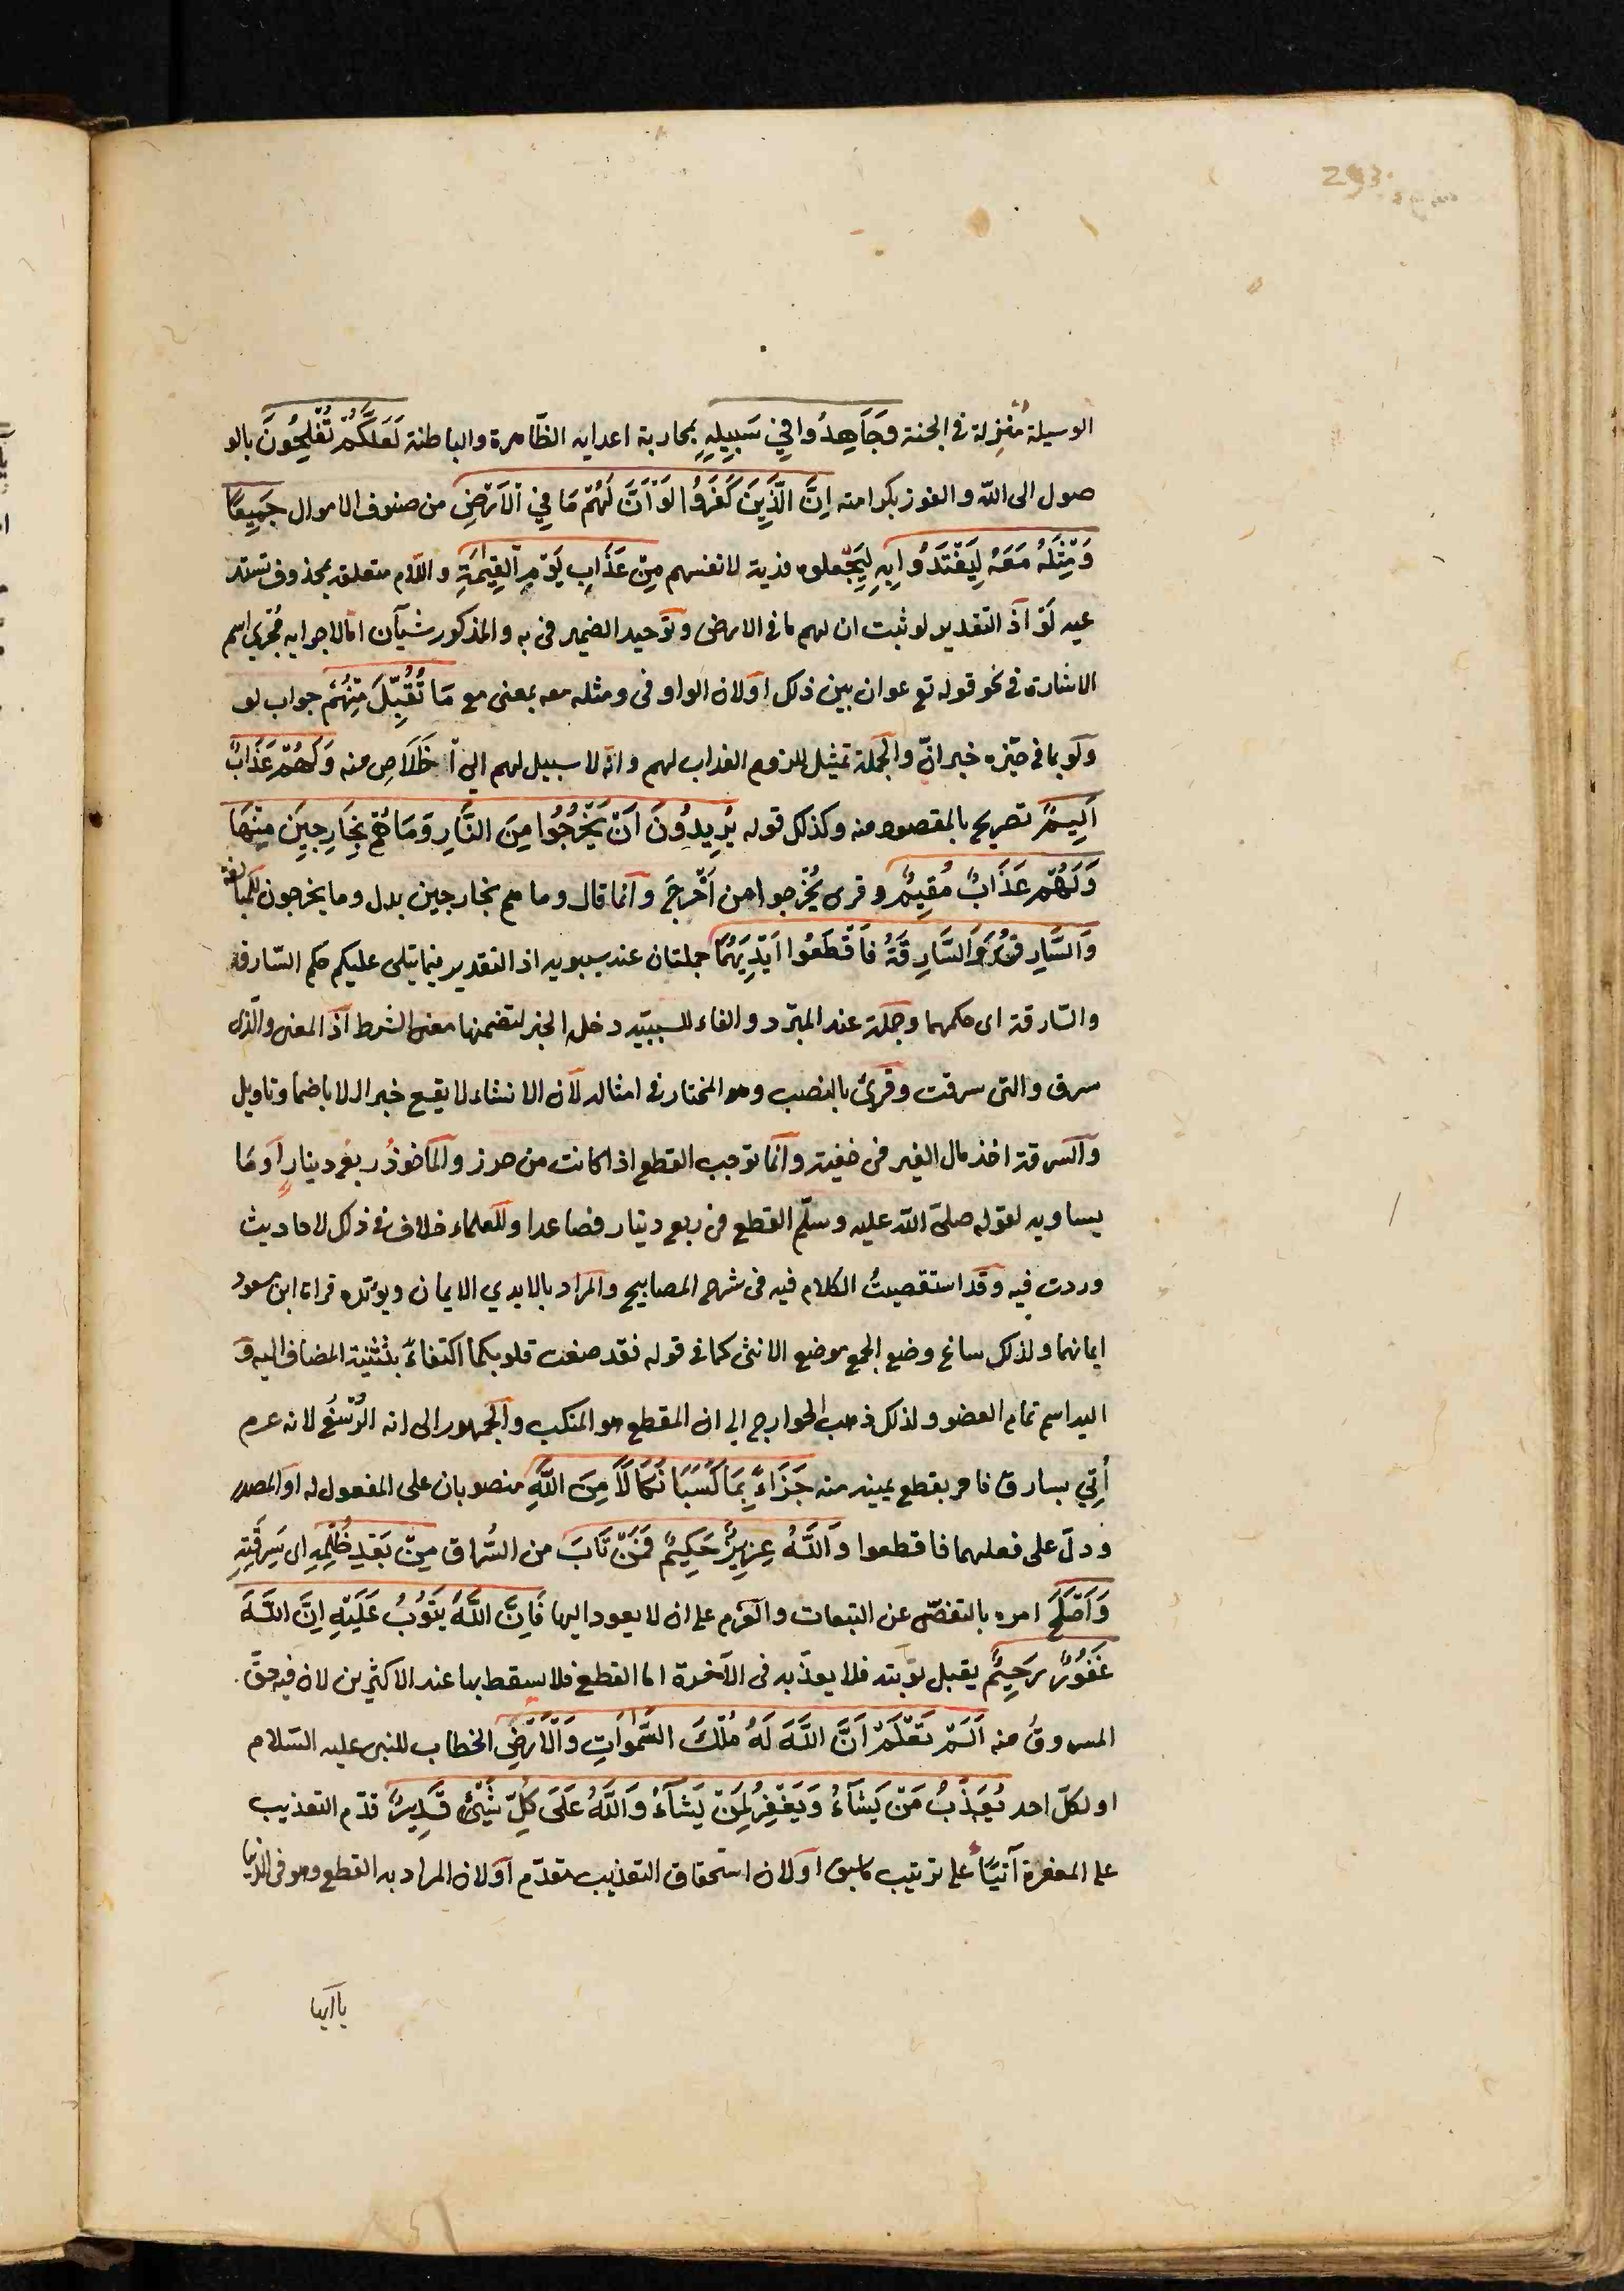 293
الوسيلة منزلة في الجنة وَجَاهِدُوا فِي سَبِيلِهِ بمحاربة اعدايه الظاهرة والباطنة لَعَلَّكُمْ تُفْلِحُونَ بالو
صول الى الله والفوز بكرامته اِنَّ الَّذِينَ كَفَرُوا لَوْ اَنَّ لَهُمْ مَا فِي الْاَرْضِ من صنوف الاموال جَمِيعًا
وَمِثْلَهُ مَعَهُ لِيَفْتَدُوا بِهِ لِيَجْعلوه فدية لانفسهم مِنْ عَذَابِ يَوْمِ الْقِيٰمَةِ واللام متعلق بمحذوف تستد
عيه لَوْ اذ التقدير لو ثبت ان لهم ما في الارض وتوحيد الضمير في به والمذكور شيآن امّا لاجرايه مُجْرَي اسم
الاشارة في نحو قوله تع عوان بين ذلك اولان الواو في ومثله معه بمعنى مع مَا تُقُبِّلَ مِنْهُمْ جواب لو
ولَو بما في حيّزه خبر انّ والجملة تمثيل للزوم العذاب لهم وانّه لا سبيل لهم الي آ خَلَاصِ منه وَلَهُمْ عَذَابٌ
اَلِيمٌ تصريح بالمقصود منه وكذلك قوله يُرِيدُونَ اَنْ يَخْرُجُوا مِنَ النَّارِ وَمَا هُمْ بِخَارِجِينَ مِنْهَا
وَلَهُمْ عَذَابٌ مُقِيمٌ وقرى يُخْرجوا من اَخْرَجَ وانما قال وما هم بخارجين بدل وما يخرجون للمبالغة
وَالسَّارِقُ وَالسَّارِقَةُ فَاقْطَعُوا اَيْدِيَهُمَا جملتان عند سيبويه اذ التقدير فيما يتلى عليكم حكم السّارق
والسّارقة اى حكمهما وجملة عند المبرّد والفاء للسببيّه دخل الخبر لتضمنها معنى الشرط اذ المعنى والّذى
سرق والتى سرقت وقُرِئ بالنصب وهو المختار في امثاله لان الانشاء لا يقع خبرا الا باضمار وتاويل
والسرقة اخذ مال الغير في خفية وانّما توجب القطع اذا كانت من حرز والماخوذُ ربعُ دينارٍ او مَا
يساويه لقوله صلىّ الله عليه وسلّم القطع في ربع دينار فصاعدا وللعلماء خلاف في ذلك لاحاديث
وردت فيه وقد استقصيتُ الكلام فيه في شرح المصابيح والمراد بالايدي الايمان ويؤيّده قراة ابن مسعود
ايمانهما ولذلك ساغ وضع الجمع موضع الانثى كما في قوله فقد صغت قلوبكما اكتفاءً بتثنية المضاف اليه وَ
اليد اسم تمام العضو ولذلك ذهب الخوارج الي ان المقطع هو المنكب والجمهور الى انه الرُسْغُ لانه ءم
أُتِي بسارق فامر بقطع يمينه منه جَزَاءً بِمَا كَسَبَا نَكَالًا مِنَ اللَّهِ منصوبان على المفعول له او المصدر
وَدلّ على فعلهما فاقطعوا وَاللَّهُ عَزِيزٌ حَكِيمٌ فَمَنْ تَابَ من السُراق مِنْ بَعْدِ ظُلْمِهِ اى سَرِقَتِهِ
وَاَصْلَحَ امره بالتفصّى عن التبعات والعزم على ان لا يعود اليها فَاِنَّ اللَّهَ يَتُوبُ عَلَيْهِ اِنَّ اللَّهَ
غَفُورٌ رَحِيمٌ يقبل توبته فلا يعذّبه في الآخرة اما القطع فلا يسقط بها عند الاكثرين لان فيه حقّ
المسروق منه اَلَمْ تَعْلَمْ اَنَّ اللَّهَ لَهُ مُلْكُ السَّمٰوَاتِ وَالْاَرْضِ الخطاب للنبى عليه السّلام
او لكلّ احد يُعَذِّبُ مَنْ يَشَآءُ وَيَغْفِرُ لِمَنْ يَشَآءُ وَاللَّهُ عَلَى كُلِّ شَيْئٍ قَدِيرٌ قدّم التعذيب
على المغفرة آتيًا على ترتيب ما سبق اولان استحقاق التعذيب مقدّم اولان المراد به القطع وهو في الدنيا
ياايها